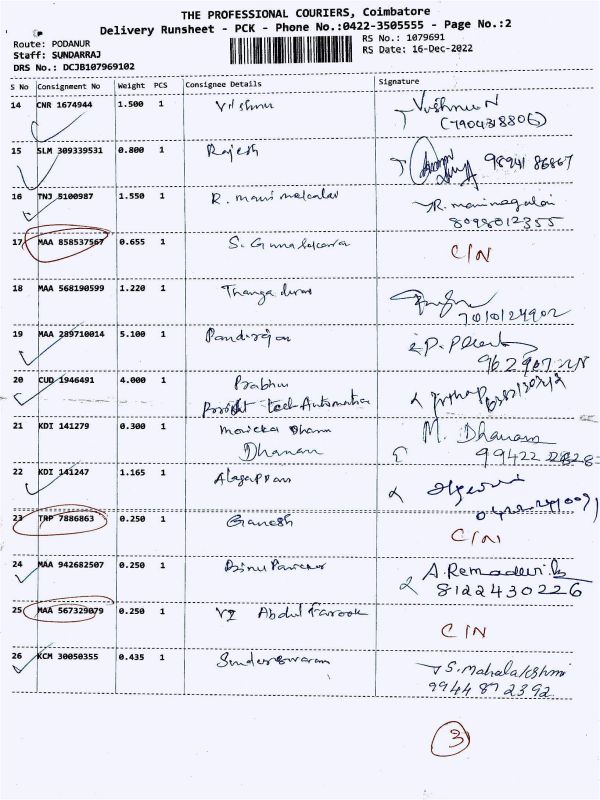 THE PROFESSIONAL COURIERS, Coimbatore
Delivery Runsheet - PCK - Phone No.:0422-3505555 - Page No.:2
Route: PODANUR
RS No.: 1079691
Staff: SUNDARRAJ
RS Date: 16-Dec-2022
DRS No.: DCJB107969102
S No Consignment No Weight PCS Consignee Details Signature
14 CNR 1674944 1.500 1 Vishnu Vishnu N
(7904318806)
15 SLM 309339531 0.800 1 Rajesh 98941 86867
16 TNJ 5100987 1.550 1 R.
8098012355
17 MAA 858537567 0.655 1 S. C/N
18 MAA 568190599 1.220 1 Thanga durai
7010124902
19 MAA 289710014 5.100 1 Pandirajan P.
20 CUD 1946491 4.000 1 Prabhu
tech Automation
21 KDI 141279 0.300 1 M. Dhanam
Dhanam 99422
22 KDI 141247 1.165 1 Alagappan
23 TRP 7886863 0.250 1 Ganesh C/N
24 MAA 942682507 0.250 1 Binu A. Remadevi
8122430226
25 MAA 567329079 0.250 1 Abdul Farook C/N
26 KCM 30050355 0.435 1 Sundareswaran S. Mahalakshmi
9944872392
3